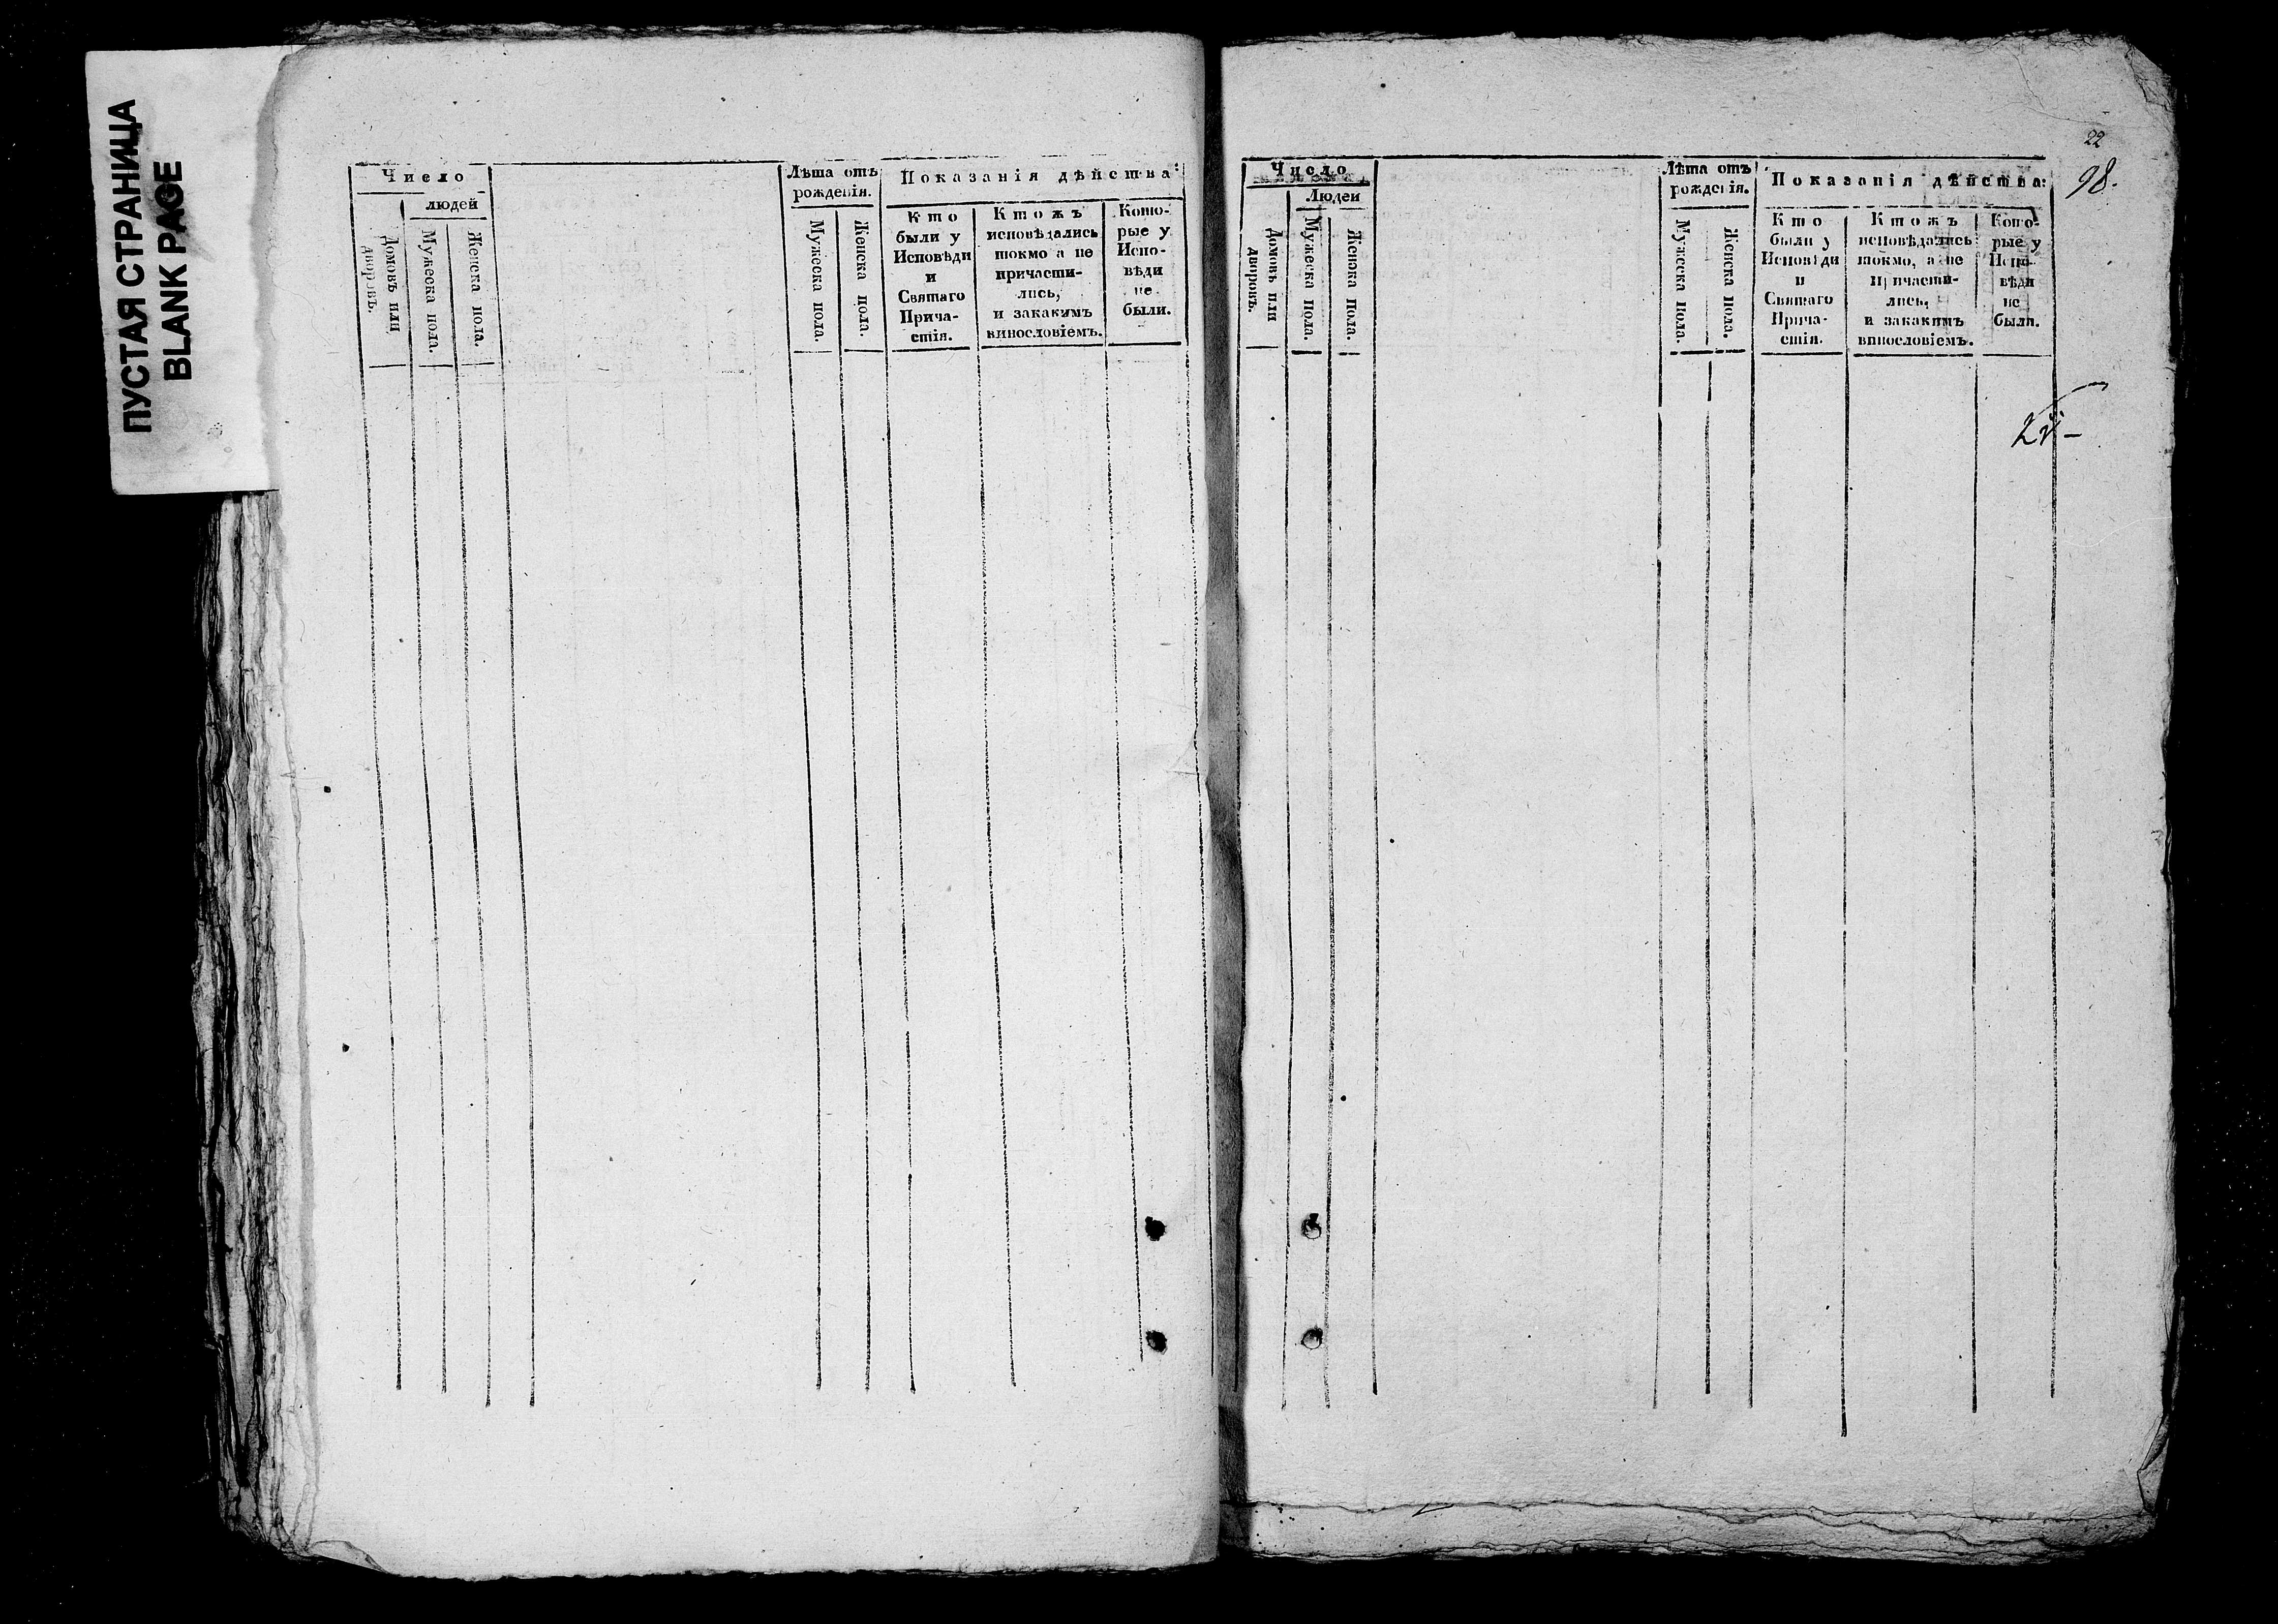 ПУСТАЯ СТРАНИЦА
BLANK PAGE
Число
людей
Домовъ или
дворовъ.
Мужеска пола.
Женска пола.
Лѣта отъ
рожденія.
Мужеска пола.
Женска пола.
Показанія дѣйства:
Кто
были у
Исповѣди
и
Святаго
Прича-
стія.
Ктожъ
исповѣдались
токмо а не
причасти-
лись,
и закакимъ
винословіемъ.
Кото-
рые у
Испо-
вѣди
не
были.
22
98.
Число
Людей
Домовъ или
дворовъ.
Мужеска пола.
Женска пола.
Лѣта отъ
рожденія.
Мужеска пола.
Женска пола.
Показанія дѣйства:
Кто
были у
Исповѣди
и
Святаго
Прича-
стія.
Ктожъ
исповѣдались
токмо, а не
Причасти-
лись,
и закакимъ
винословіемъ.
Кото-
рые у
Испо-
вѣди
не
были.